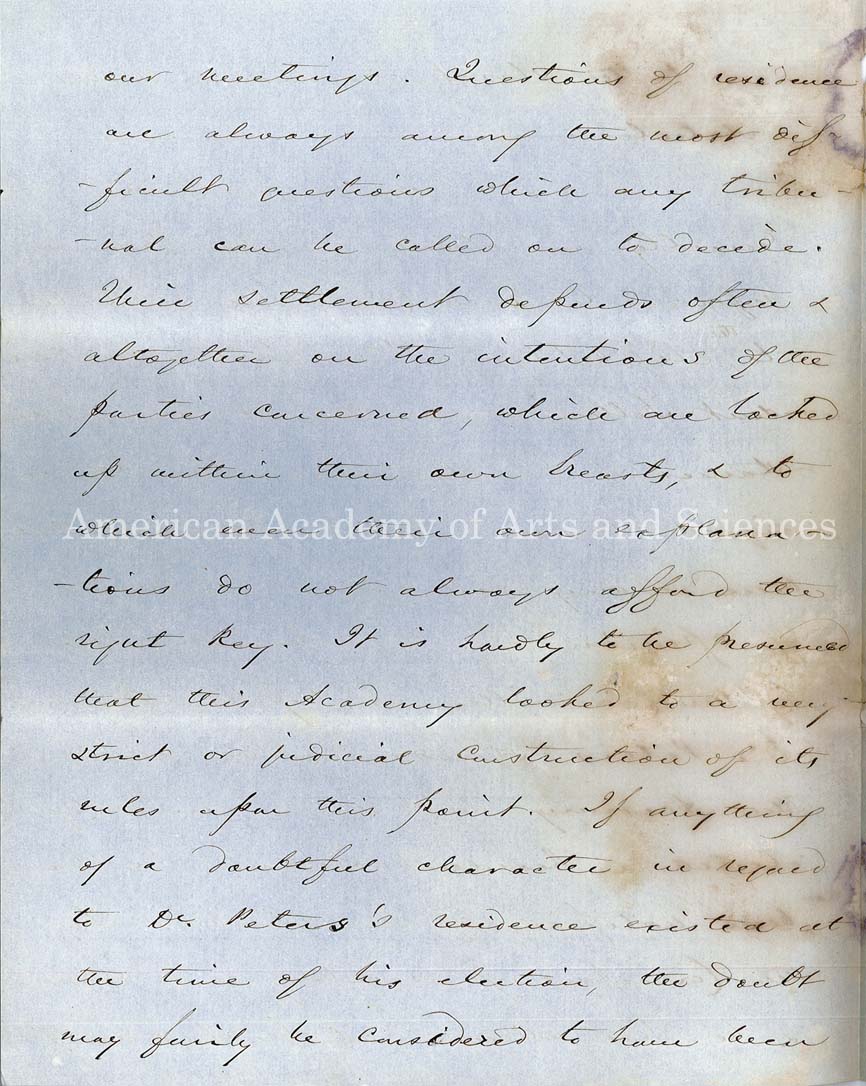 our meetings. Questions of residence
are always among the most dif-
-ficult questions which any tribu-
-nal can be called on to decide.
Their settlement depends often &
altogether on the intentions of the
parties concerned, which are locked
up within their own breasts, & to
which even their own explana-
American Academy of Arts and Sciences
-tions do not always afford the
right key. It is hardly to be presumed
that this Academy looked to a very
strict or judicial construction of its
rules upon this point. If anything
of a doubtful character in regard
to Dr. Peters's residence existed at
the time of his election, the doubt
may fairly be considered to have been